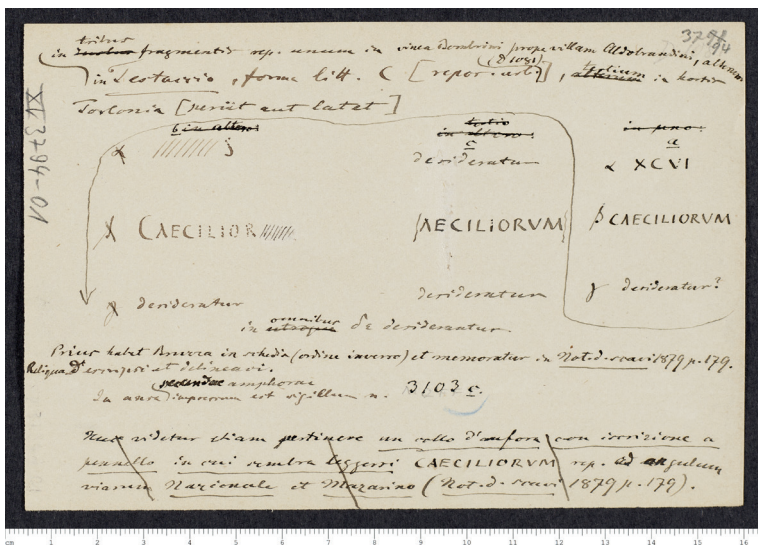 3794
94
tribus
in duobus fragmentis rep. unum in vinea Bombrini prope villam Aldobrandini, alterum
in Testaccio, forma litt. C [repor. urb.], alterum tertium in hortis
Torlonia [periit aut latet]
XV 3794-01
b in altero:
tertio
in altero:
c
in uno:
a
α j
desideratur
α XCVI
CAECILIOR
AECILIORVM
β CAECILIORVM
γ desideratur
desideratur
γ desideratur?
omnibus
in utroque δ ε desiderantur.
Prius habet Bruzza in schedis (ordine inverso) et memoratur in Not. d. scavi 1879 p. 179.
Reliqua descripsi et delineavi.
secundae amphorae
In ansa impressum est sigillum n. 3103 c.
Huc videtur etiam pertinere un collo d'anfora con iscrizione a
pennello in cui sembra leggersi CAECILIORVM rep. ad angulum
viarum Nazionale et Mazarino (Not. d. scavi 1879 p. 179).
cm 1 2 3 4 5 6 7 8 9 10 11 12 13 14 15 16